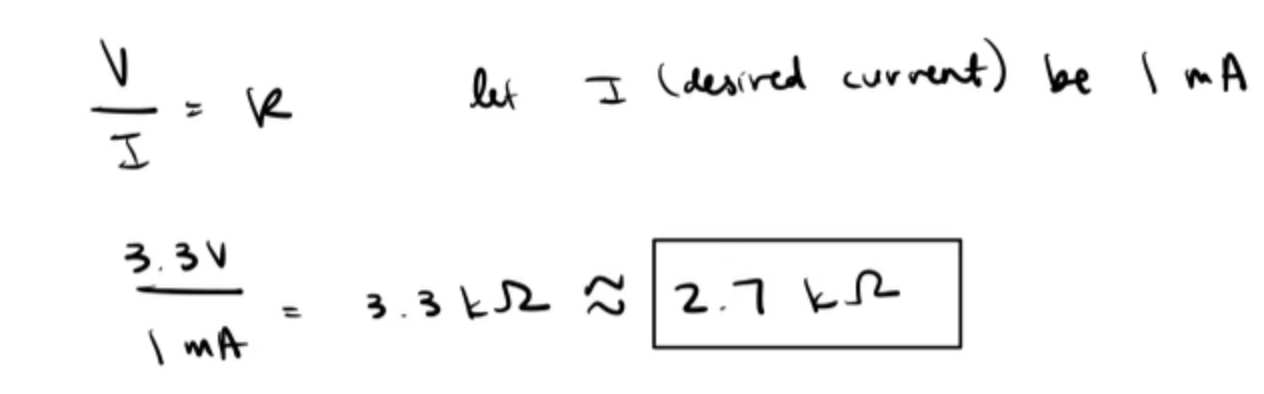 V/I = R let I (desired current) be 1 mA
3.3V/1 mA = 3.3 kΩ ≈ 2.7 kΩ